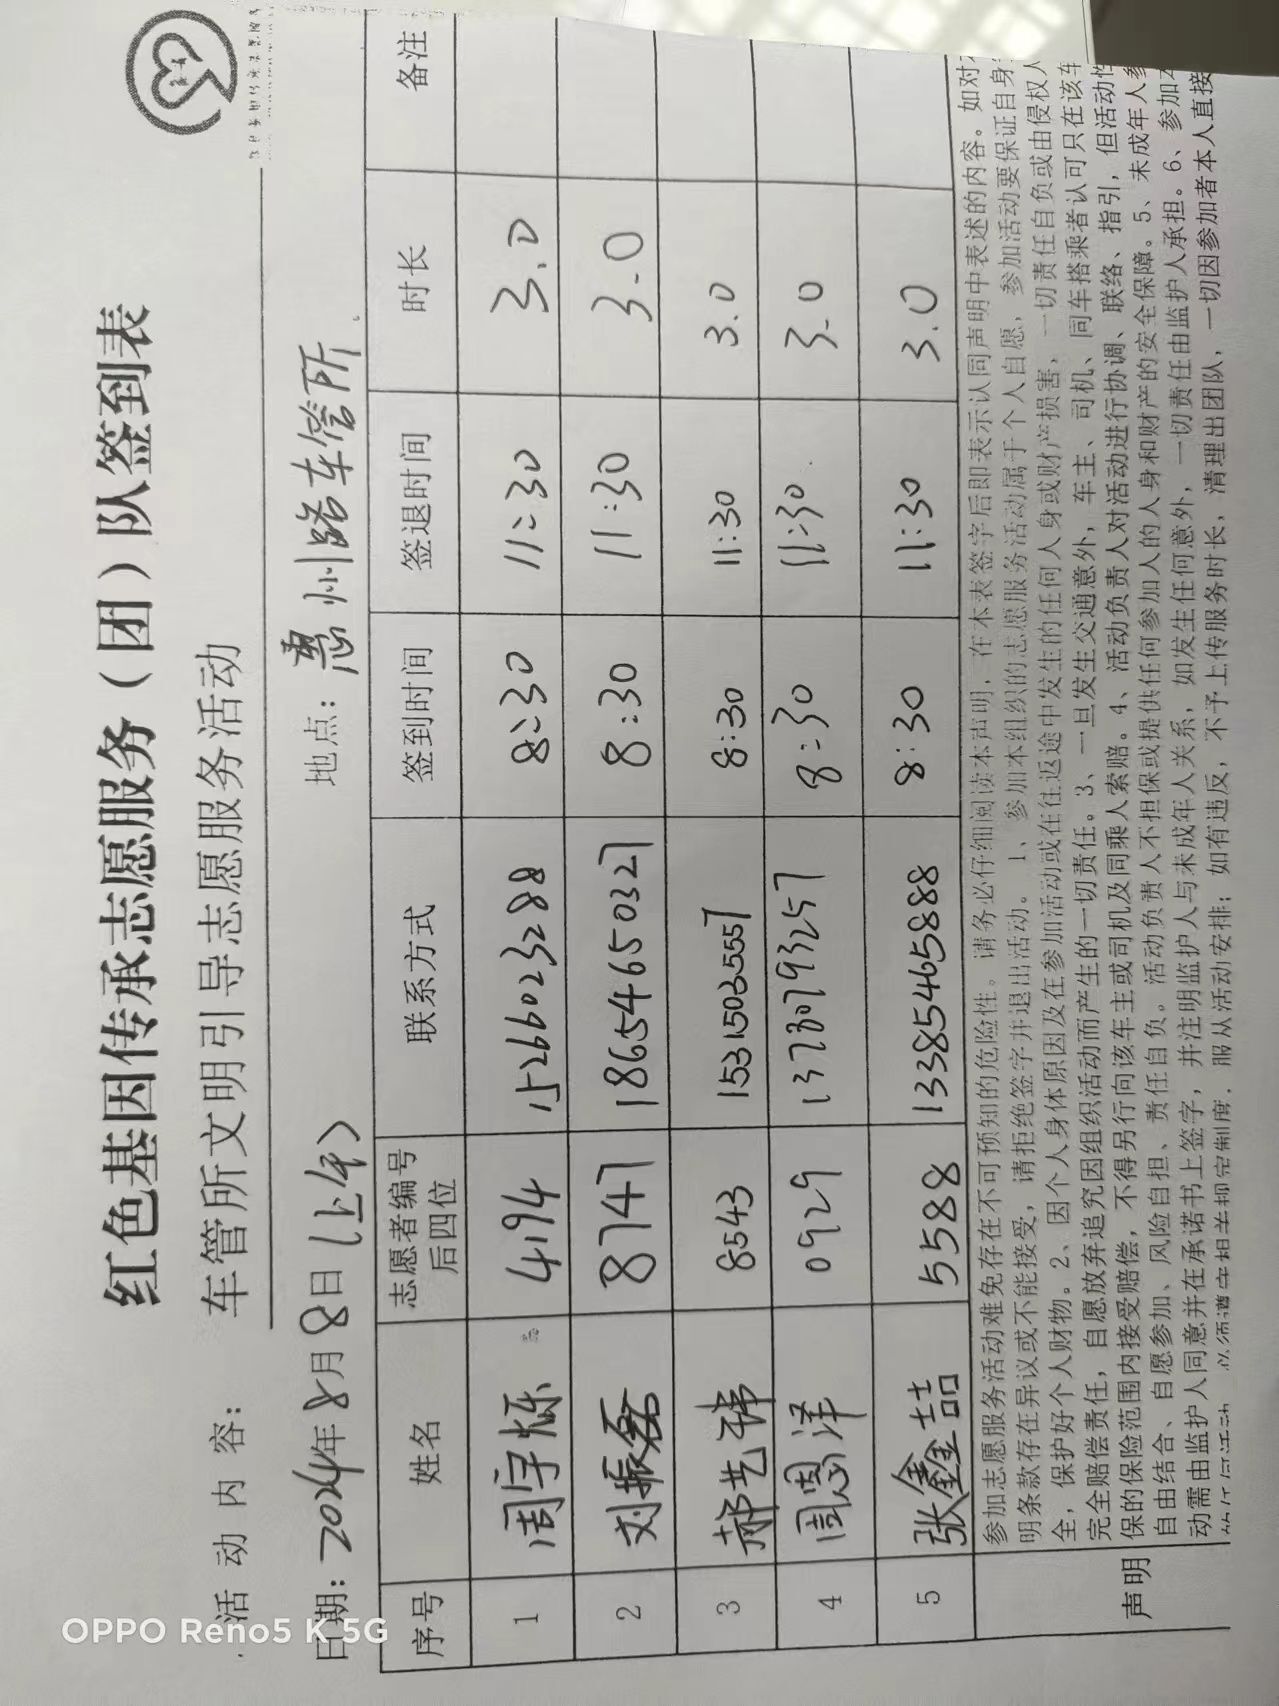 红色基因传承志愿服务（团）队签到表
活动内容： 车管所文明引导志愿服务活动
日期：2024年8月8日（上午） 地点：惠州路车管所
序号 姓名 志愿者编号后四位 联系方式 签到时间 签退时间 时长 备注
1 周宇烁 4194 15266023288 8:30 11:30 3.0
2 刘振磊 8747 18654650327 8:30 11:30 3.0
3 郝艺锑 8543 15315035557 8:30 11:30 3.0
4 周恩洋 0929 13780793257 8:30 11:30 3.0
5 张鑫喆 5588 13385465888 8:30 11:30 3.0
声明
参加志愿服务活动难免存在不可预知的危险性。请务必仔细阅读本声明，在本表签字后即表示认同声明中表述的内容。如对
明条款存在异议或不能接受，请拒绝签字并退出活动。1、参加本组织的志愿服务活动属于个人自愿，参加活动要保证自身
全，保护好个人财物。2、因个人身体原因及在参加活动或在往返途中发生的任何人身或财产损害，一切责任自负或由侵权人
完全赔偿责任，自愿放弃追究因组织活动而产生的一切责任。3、一旦发生交通意外，车主、司机、同车搭乘者认可只在该车
保的保险范围内接受赔偿，不得另行向该车主或司机及同乘人索赔。4、活动负责人对活动进行协调、联络、指引，但活动性
自由结合、自愿参加、风险自担、责任自负。活动负责人不担保或提供任何参加人的人身和财产的安全保障。5、未成年人参
动需由监护人同意并在承诺书上签字，并注明监护人与未成年人关系，如发生任何意外，一切责任由监护人承担。6、参加本
的任何活动，必须遵守相关规定制度，服从活动安排；如有违反，不予上传服务时长，清理出团队，一切因参加者本人直接
OPPO Reno5 K 5G